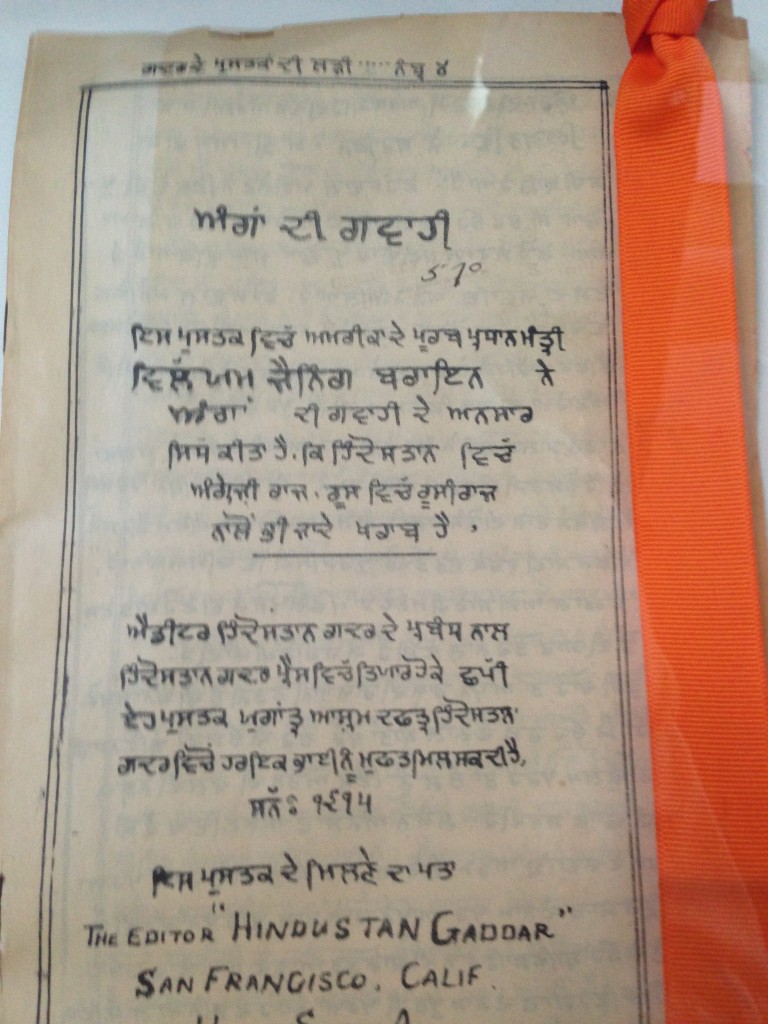 ਗਦਰ ਦੇ ਪੁਸਤਕਾਂ ਦੀ ਲੜੀ ਨੰਬ੍ਰ ੪
ਅੰਗਾਂ ਦੀ ਗਵਾਹੀ
570
ਇਸ ਪੁਸਤਕ ਵਿਚੱ ਅਮਰੀਕਾ ਦੇ ਪੂਰਬ ਪ੍ਰਧਾਨ ਮੰਤ੍ਰੀ
ਵਿਲੱਯਮ ਜੈਨਿੰਗ ਬਰਾਇਨ ਨੇ
ਅੰਗਾਂ ਦੀ ਗਵਾਹੀ ਦੇ ਅਨਸਾਰ
ਸਿਧ ਕੀਤਾ ਹੈ. ਕਿ ਹਿੰਦੋਸਤਾਨ ਵਿਚੱ
ਅੰਗ੍ਰੇਜ਼ੀ ਰਾਜ. ਰੂਸ ਵਿਚੱ ਰੂਸੀ ਰਾਜ
ਨਾਲੋਂ ਭੀ ਜਾਦੇ ਖਰਾਬ ਹੈ.
ਐਡੀਟਰ ਹਿੰਦੋਸਤਾਨ ਗਦਰ ਦੇ ਪ੍ਰਬੰਧ ਨਾਲ
ਹਿੰਦੋਸਤਾਨ ਗਦਰ ਪ੍ਰੈਸ ਵਿਚੱ ਤਿਯਾਰ ਹੋਕੇ ਛਪੀ
ਏਹ ਪੁਸਤਕ ਯੁਗਾਂਤ੍ਰ ਆਸ਼੍ਰਮ ਦਫਤ੍ਰ ਹਿੰਦੋਸਤਾਨ
ਗਦਰ ਵਿੱਚੋਂ ਹਰਇਕ ਭਾਈ ਨੂੰ ਮੁਫਤ ਮਿਲ ਸਕਦੀ ਹੈ.
ਸਨੱ: ੧੯੧੫
ਇਸ ਪੁਸਤਕ ਦੇ ਮਿਲਣੇ ਦਾ ਪਤਾ
THE EDITOR "HINDUSTAN GADDAR"
SAN FRANCISCO, CALIF.
U. S. A.